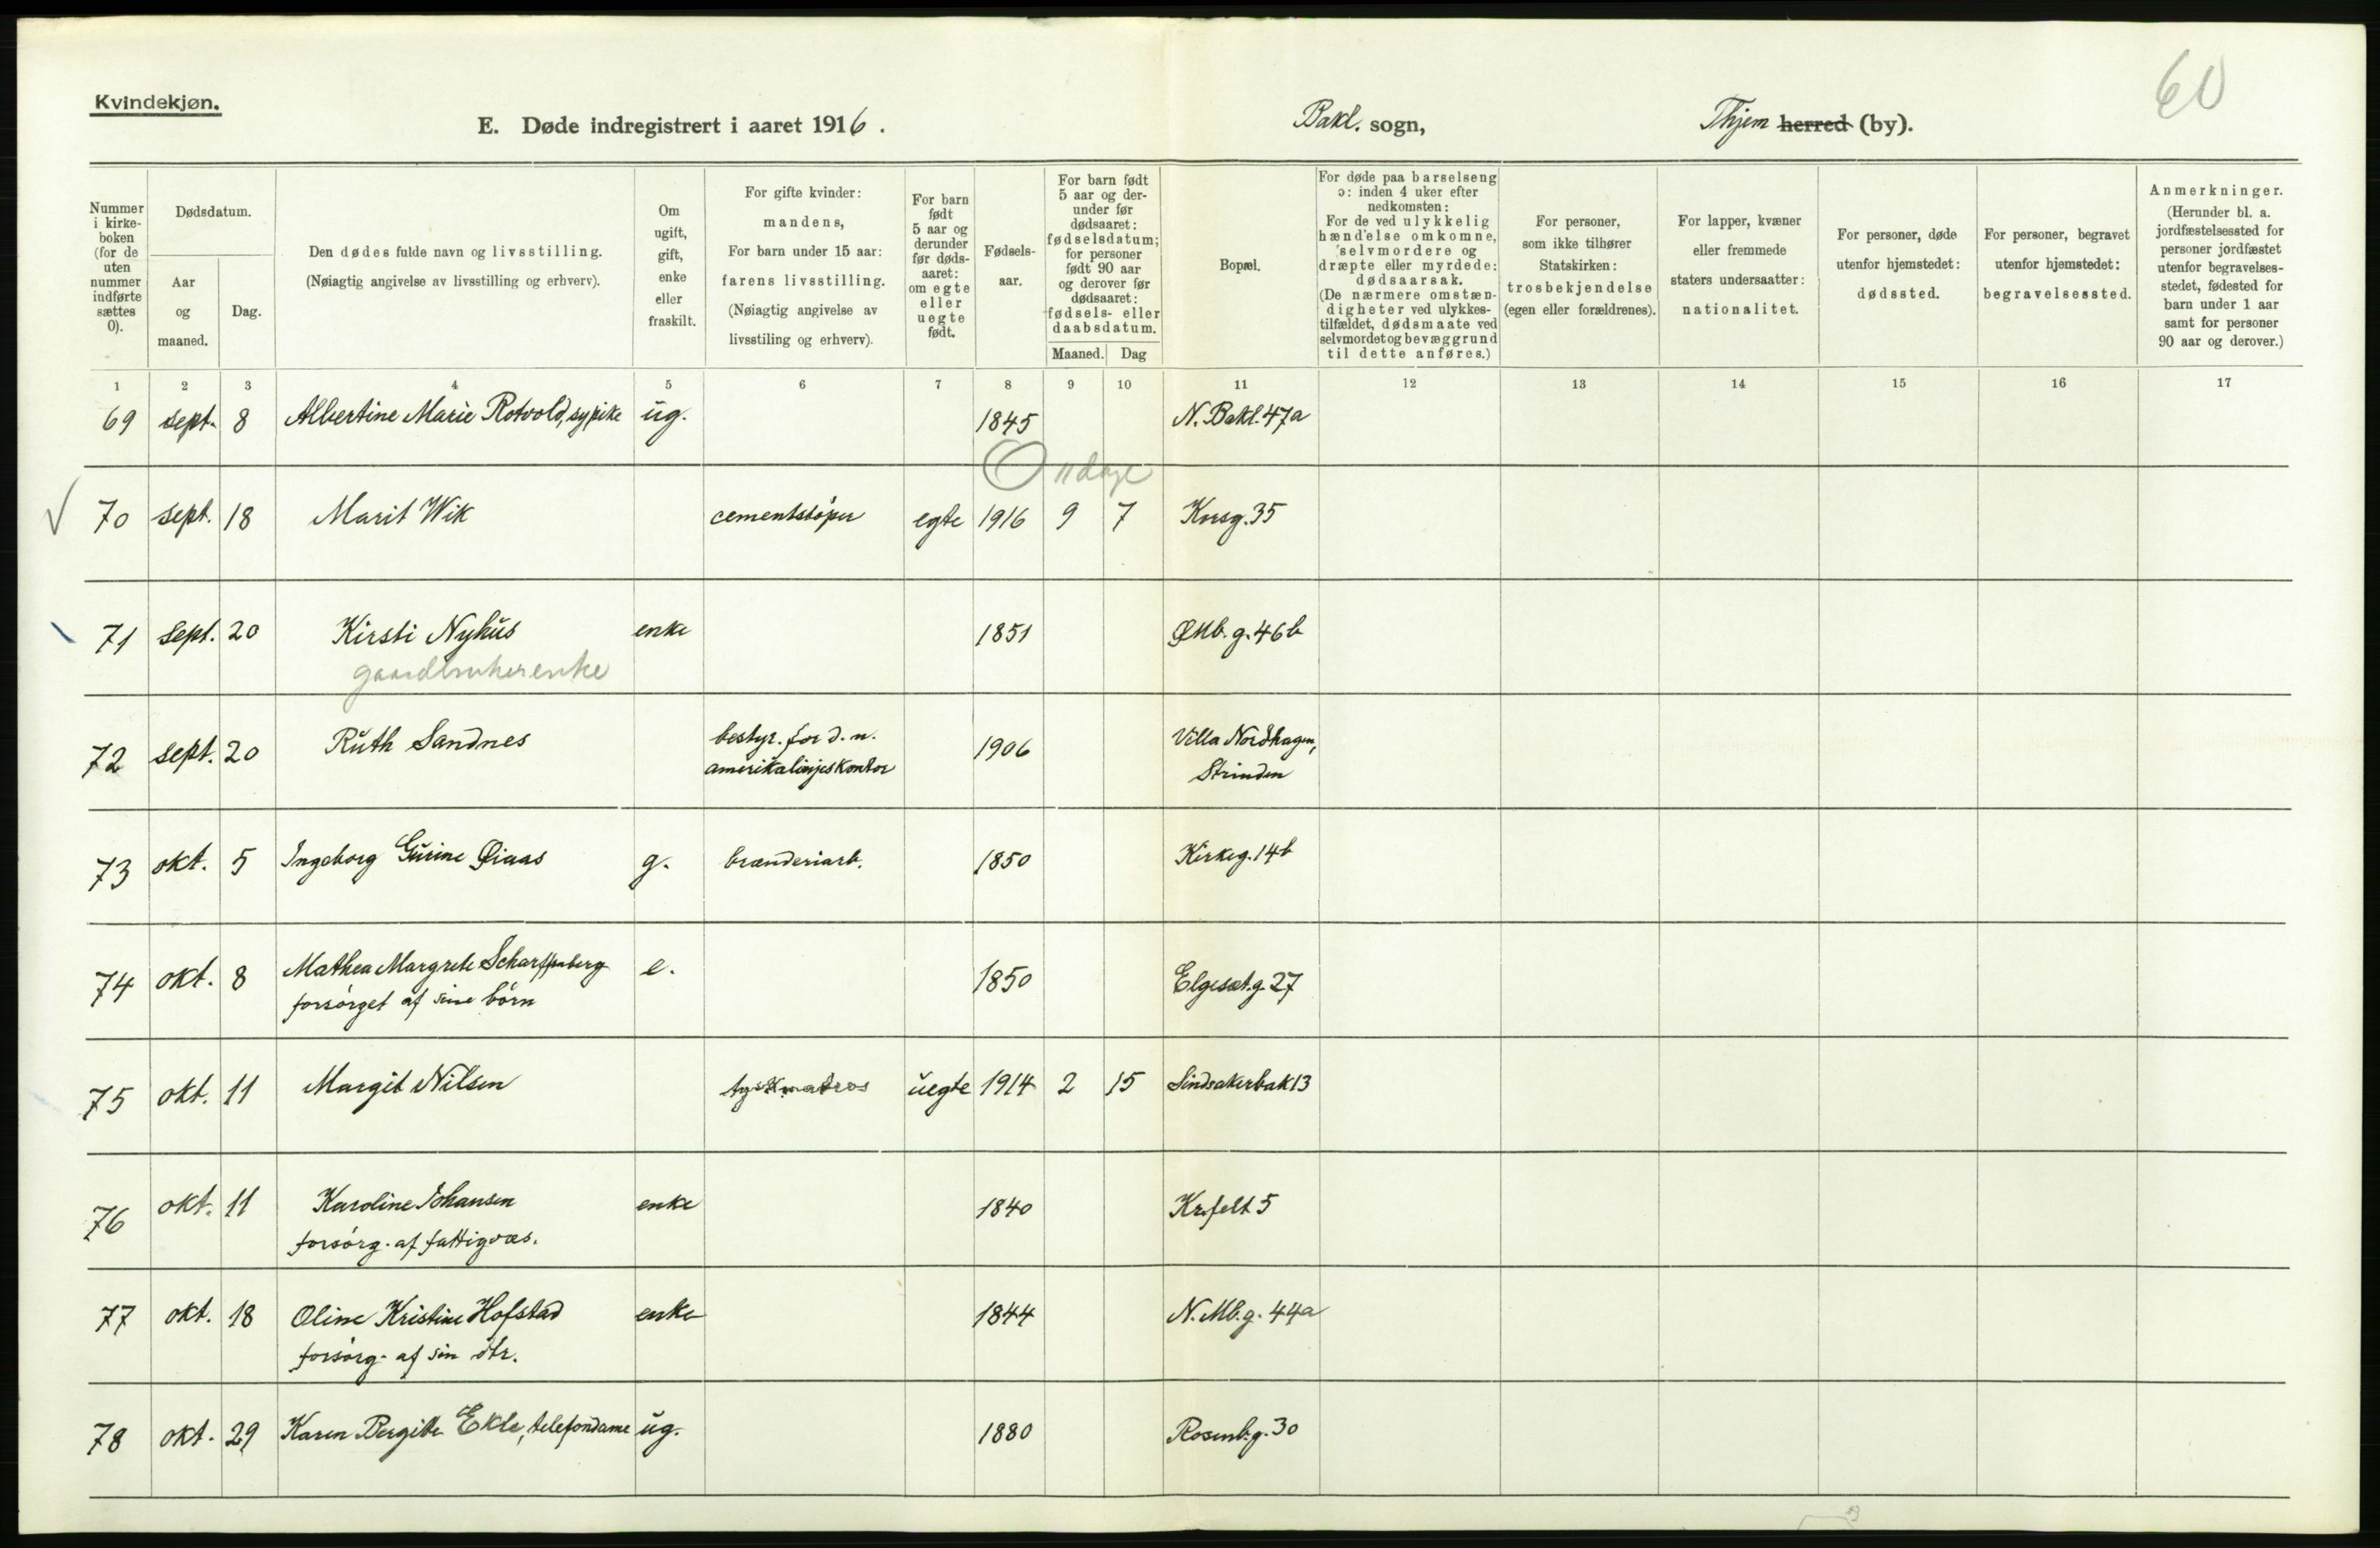 60
Kvindekjøn.
E. Døde indregistrert i aaret 1916. Bakl. sogn, Thjem herred (by).
Nummer i kirke-boken (for de uten nummer indførte sættes 0).
Dødsdatum.
Aar og maaned.
Dag.
Den dødes fulde navn og livsstilling.
(Nøiagtig angivelse av livsstilling og erhverv).
Om ugift, gift, enke eller fraskilt.
For gifte kvinder:
mandens,
For barn under 15 aar:
farens livsstilling.
(Nøiagtig angivelse av
livsstiling og erhverv).
For barn født 5 aar og derunder før døds-aaret: om egte eller uegte født.
Fødsels-aar.
For barn født 5 aar og der-under før dødsaaret: fødselsdatum; for personer født 90 aar og derover før dødsaaret: fødsels- eller daabsdatum.
Maaned. Dag
Bopæl.
For døde paa barselseng ɔ: inden 4 uker efter nedkomsten:
For de ved ulykkelig hændelse omkomne, selvmordere og dræpte eller myrdede: dødsaarsak.
(De nærmere omstæn-digheter ved ulykkes-tilfældet, dødsmaate ved selvmordet og bevæggrund til dette anføres.)
For personer, som ikke tilhører Statskirken: trosbekjendelse (egen eller forældrenes).
For lapper, kvæner eller fremmede staters undersaatter: nationalitet.
For personer, døde utenfor hjemstedet: dødssted.
For personer, begravet utenfor hjemstedet: begravelsessted.
Anmerkninger.
(Herunder bl. a. jordfæstelsessted for personer jordfæstet utenfor begravelses-stedet, fødested for barn under 1 aar samt for personer 90 aar og derover.)
1 2 3 4 5 6 7 8 9 10 11 12 13 14 15 16 17
69 sept. 8 Albertine Marie Rotvold, sypike ug. 1845 N. Bakl. 47a
11 dage
70 sept. 18 Marit Wik cementstøper egte 1916 9 7 Korsg. 35
71 sept. 20 Kirsti Nyhus enke 1851 Ø Mb. g. 46b
gaardbrukerenke
72 sept. 20 Ruth Sandnes bestyr. for d. n. amerikalinjes kontor 1906 Villa Nordhagen, Strinden
73 okt. 5 Ingeborg Gurine Øiaas g. brænderiarb. 1850 Kirkeg. 14b
74 okt. 8 Mathea Margrete Scharffenberg e. 1850 Elgesæt.g. 27
forsørget af sine børn
75 okt. 11 Margit Nilsen tysk matros uegte 1914 2 15 Sindsakerbak 13
76 okt. 11 Karoline Johansen enke 1840 Kr.felt 5
forsørg. af fattigvæs.
77 okt. 18 Oline Kristine Hofstad enke 1844 N. Mb. g. 44a
forsørg. af sin dtr.
78 okt. 29 Karen Bergitte Ekle, telefondame ug. 1880 Rosenb.g. 30